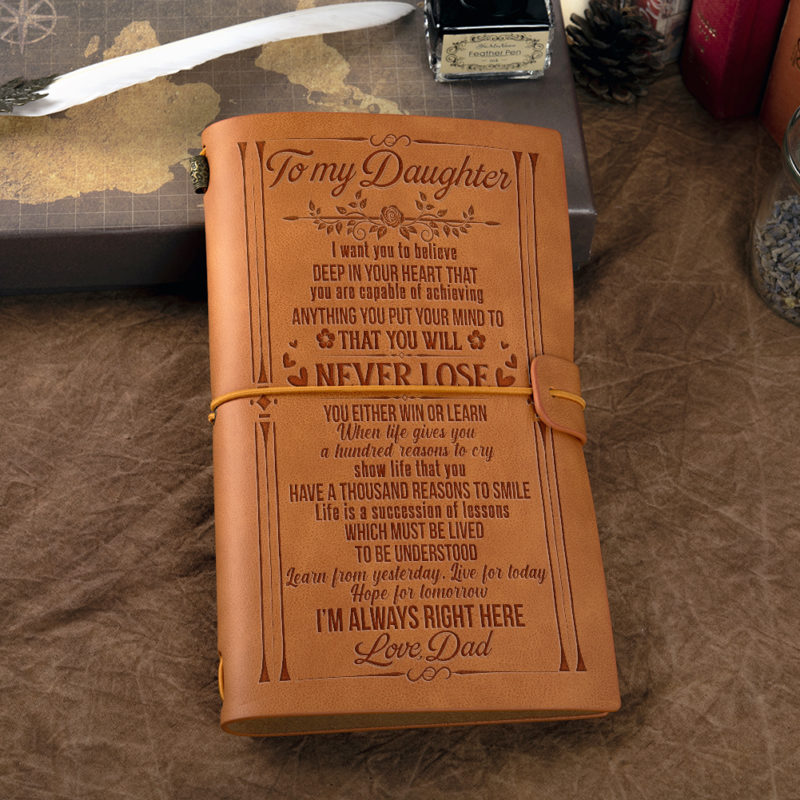 Feather Pen
To my Daughter
I want you to believe
DEEP IN YOUR HEART THAT
you are capable of achieving
ANYTHING YOU PUT YOUR MIND TO
THAT YOU WILL
NEVER LOSE
YOU EITHER WIN OR LEARN
When life gives you
a hundred reasons to cry
show life that you
HAVE A THOUSAND REASONS TO SMILE
Life is a succession of lessons
WHICH MUST BE LIVED
TO BE UNDERSTOOD
Learn from yesterday. Live for today
Hope for tomorrow
I'M ALWAYS RIGHT HERE
Love, Dad